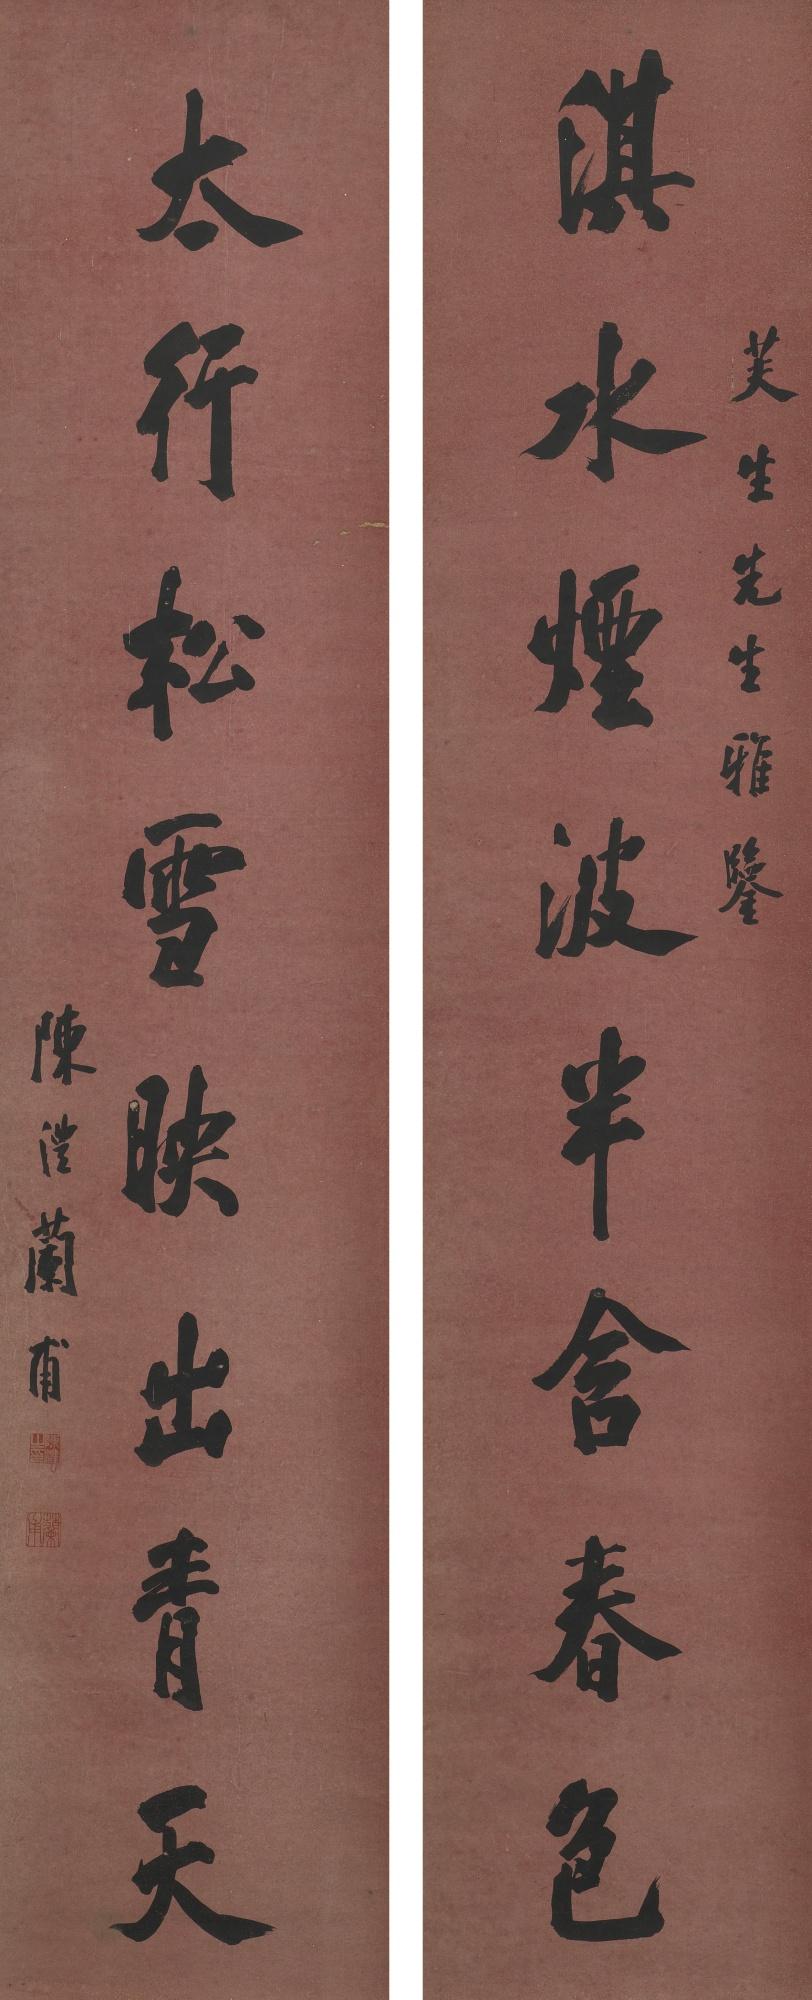 芙生先生雅鑒
淇水煙波半含春色
太行松雪映出青天
陳澧蘭甫